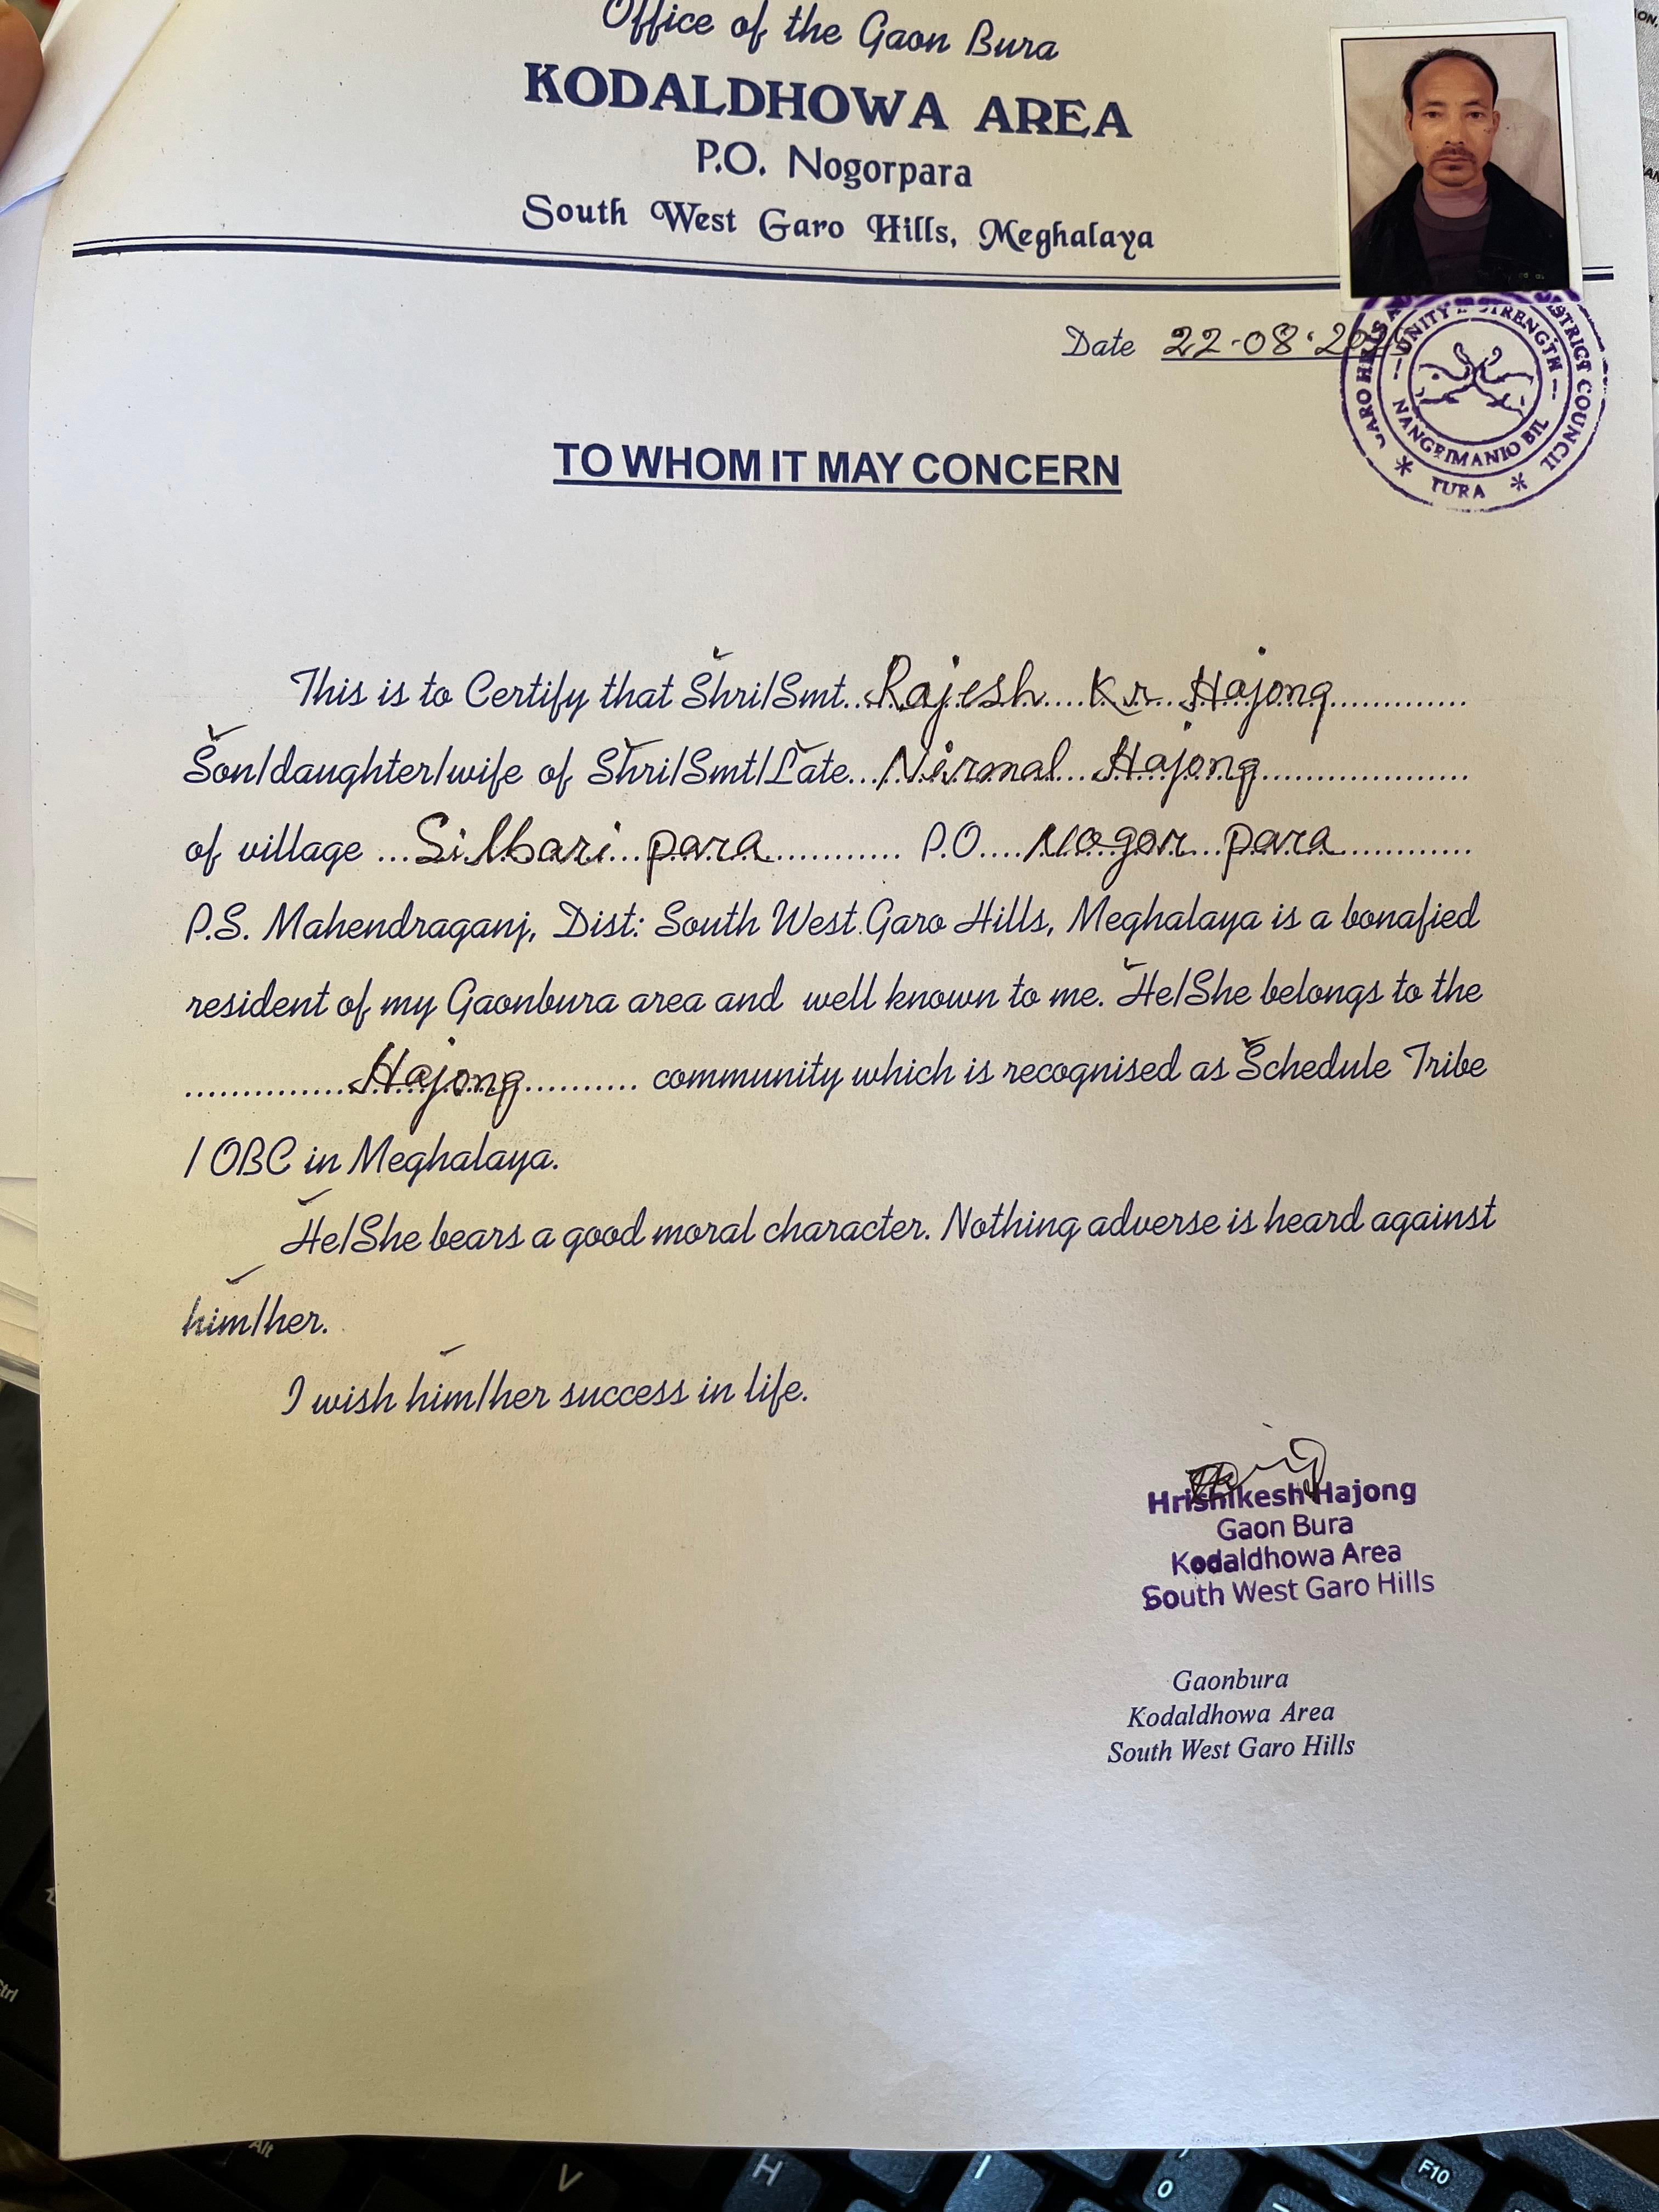 Office of the Gaon Bura
KODALDHOWA AREA
P.O. Nogorpara
South West Garo Hills, Meghalaya
Date 22-08-20
GARO HILLS DISTRICT COUNCIL
UNITY IS STRENGTH
NANGRIMANIO BIL
* TURA *
TO WHOM IT MAY CONCERN
This is to Certify that Shri/Smt..Rajesh....Kr..Hajong.............
Son/daughter/wife of Shri/Smt/Late...Nirmal...Hajong....................
of village ...Silbari...para............ P.O....Nogor...para............
P.S. Mahendraganj, Dist: South West Garo Hills, Meghalaya is a bonafied
resident of my Gaonbura area and well known to me. He/She belongs to the
..............Hajong.......... community which is recognised as Schedule Tribe
/ OBC in Meghalaya.
He/She bears a good moral character. Nothing adverse is heard against
him/her.
I wish him/her success in life.
Hrishikesh Hajong
Gaon Bura
Kodaldhowa Area
South West Garo Hills
Gaonbura
Kodaldhowa Area
South West Garo Hills
Ctrl
Alt
V
H
I
0
F10